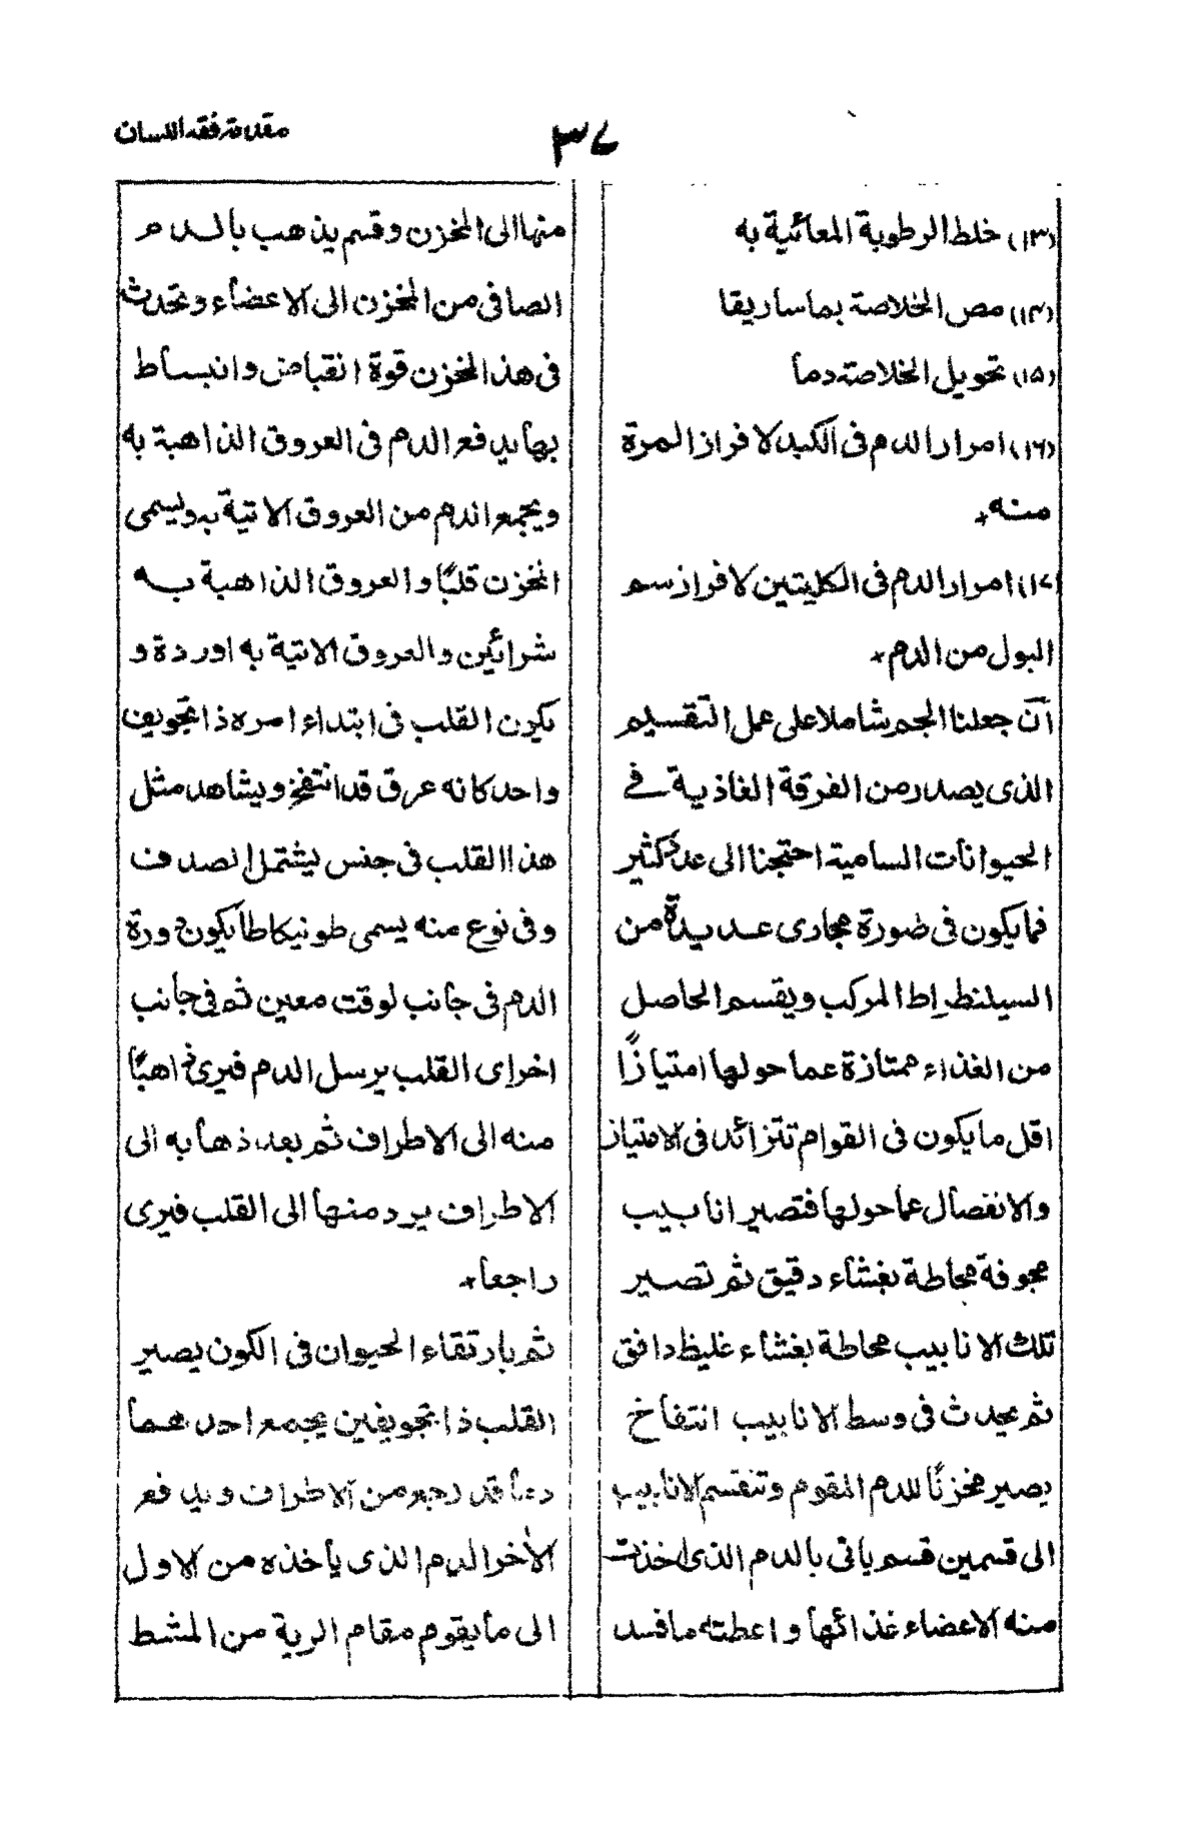 مقدمة فقه اللسان
٣٧
(١٣) خلط الرطوبة المعائية به
(١٤) مص الخلاصة بماساريقا
(١٥) تحويل الخلاصة دماً
(١٦) امرار الدم فى الكبد لافراز المرة
منه
(١٧) امرار الدم فى الكليتين لافراز سم
البول من الدم
ان جعلنا الجسم شاملا على عمل التقسيم
الذى يصدر من الفرقة الغاذية فے
الحيوانات السامية احتجنا الى عدد كثير
فما يكون فى صورة مجارى عديدة من
السيلنطراطا المركب ويقسم الحاصل
من الغذاء ممتازة عما حولها امتيازًا
اقل ما يكون فى القوام تتزائد فى الامتياز
والانفصال عما حولها فتصير انابيب
مجوفة محاطة بغشاء دقيق ثم تصير
تلك الانابيب محاطة بغشاء غليظ دافق
ثم يحدث فى وسط الانابيب انتفاخ
يصير مخزنًا للدم المقوم وتنقسم الانابيب
الى قسمين قسم ياتى بالدم الذى اخذت
منه الاعضاء غذائها واعطته ما فسد
منها الى المخزن وقسم يذهب بالدم
الصافى من المخزن الى الاعضاء وتحدث
فى هذا المخزن قوة انقباض وانبساط
بها يدفع الدم فى العروق الذاهبة به
ويجمع الدم من العروق الاتية به ويسمى
المخزن قلبًا والعروق الذاهبة به
شرائين والعروق الاتية به اوردة و
يكون القلب فى ابتداء امره ذا تجويف
واحد كانه عرق قد انتفخ ويشاهد مثل
هذا القلب فى جنس يشتمل الصدف
وفى نوع منه يسمى طونيكاطا يكون دورة
الدم فى جانب لوقت معين ثم فى جانب
اخر اى القلب يرسل الدم فيرى ذاهبًا
منه الى الاطراف ثم بعد ذهابه الى
الاطراف يرد منها الى القلب فيرى
راجعا
ثم بارتقاء الحيوان فى الكون يصير
القلب ذا تجويفين يجمع احدهما
دماً قد رجع من الاطراف ويدفع
الأخر الدم الذى ياخذه من الاول
الى ما يقوم مقام الرية من المشط